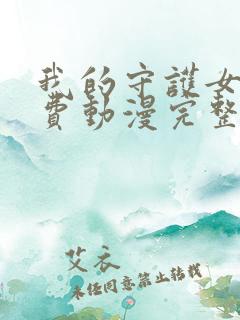 我的守護女
費動漫完整
艾衣
未经同意禁止转载